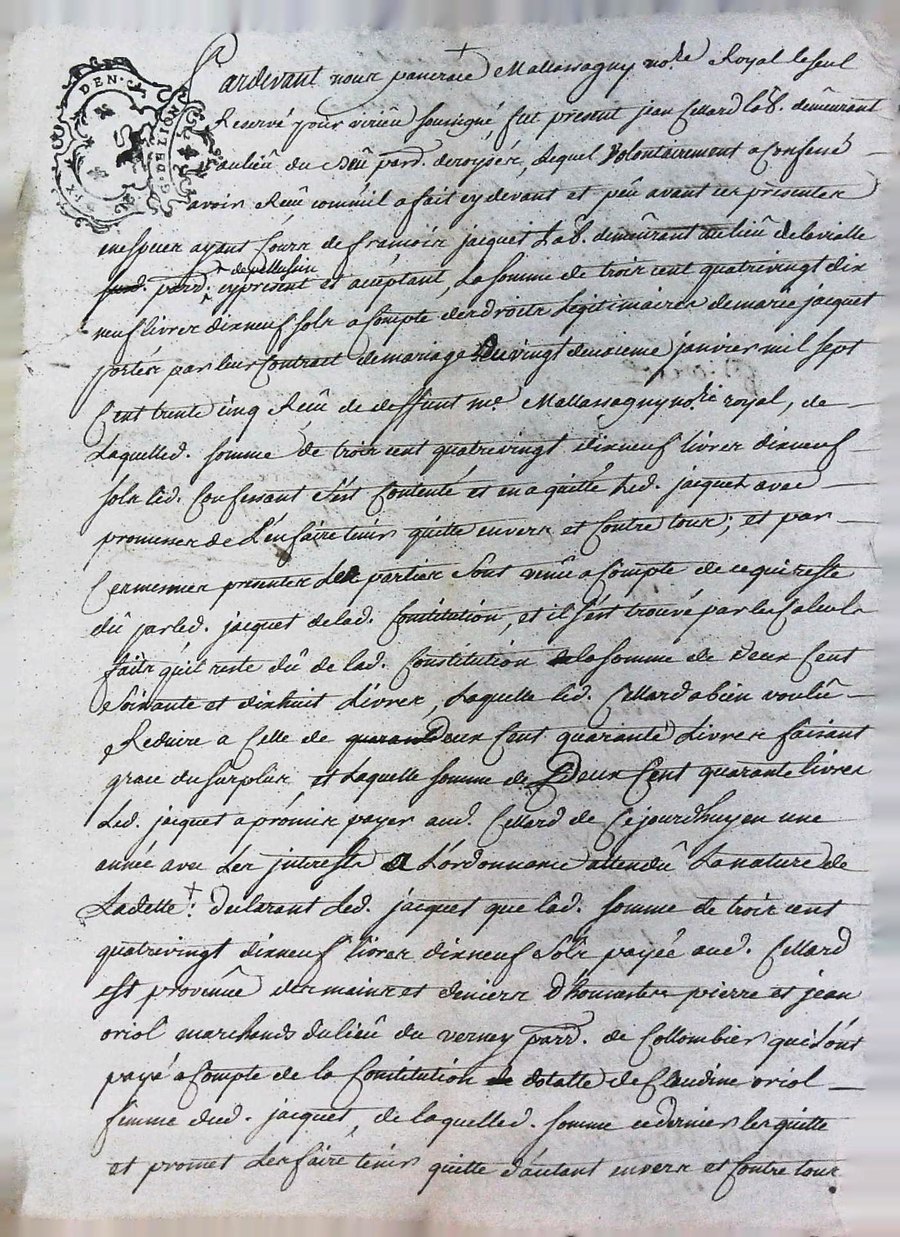 DEN. G.D.E LION
Pardevant nous pancrace Mallassagny no.re Royal le seul
Reservé pour virieu soussigné, fut present jean Cellard lab. demeurant
au lieu du par.d. de royzey, Lequel Volontairement a Confessé
avoir Reçû comme il a fait cy devant et peû avant ces presentes
en espece ayant Cours de francois jacquet Lab. demeûrant au lieû de la vialle
par.d. de pellussin cy present et acéptant, La somme de trois cent quatrevingt dix
neuf livres dixneuf sols a Compte des droits Légitimaires de marie jacquet
portés par leur Contract de mariage du vingt deuxieme janvier mil sept
Cent trente cinq Reçû de deffunt me. Mallassagny no.re royal, de
Laquelle d. somme de trois cent quatrevingt dixneuf livres dixneuf
sols led. Confessant s'est Contenté et en a quitté led. jacquet avec
promesse de L'en faire tenir quitte envers et Contre tous; et par
Ces mesmes presentes Les parties sont venû a Compte de ce qui reste
dû par led. jacquet de lad. Constitution, et il s'est trouvé par les Calculs
faits qu'il reste dû de lad. Constitution la somme de Deux Cent
Soixante et dixhuit Livres, Laquelle led. Cellard a bien voulû
Reduire a Celle de deux Cent quarante Livres faisant
grace du surplus, et Laquelle somme de Deux Cent quarante livres
Led. jacquet a promis payer aud. Cellard de Cejourdhuy en une
année avec Les interests a L'ordonnance attendû La nature de
La dette: declarant Led. jacquet que lad. somme de trois cent
quatrevingt dixneuf livres dixneuf sols payée aud. Cellard
est provenûe des mains et deniers d'honnestes pierre et jean
oriol marchands du lieû du verney par.d. de Collombier qui L'ont
payé a Compte de la Constitution dotalle de Claudine oriol
femme dud. jacquet, de laquelle d. somme ce dernier les quitte
et promet Les faire tenir quitte d'autant envers et Contre tous